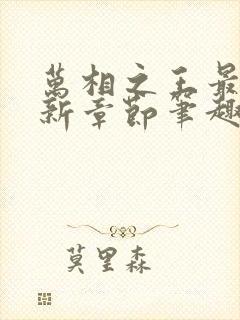 萬相之王最
新章節筆趣
莫里森